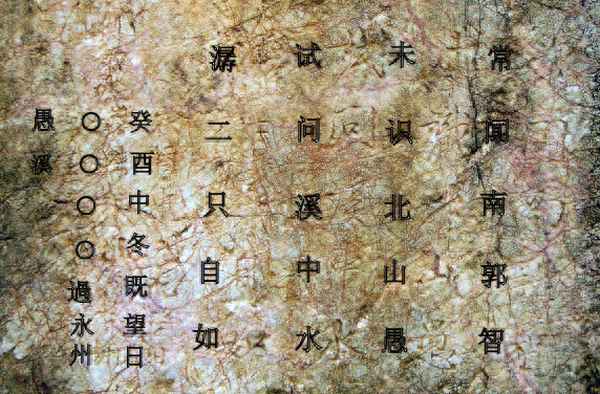 常闻南郭智
未识北山愚
试问溪中水
潺二只自如
癸酉中冬既望日
〇〇〇〇過永州
愚溪